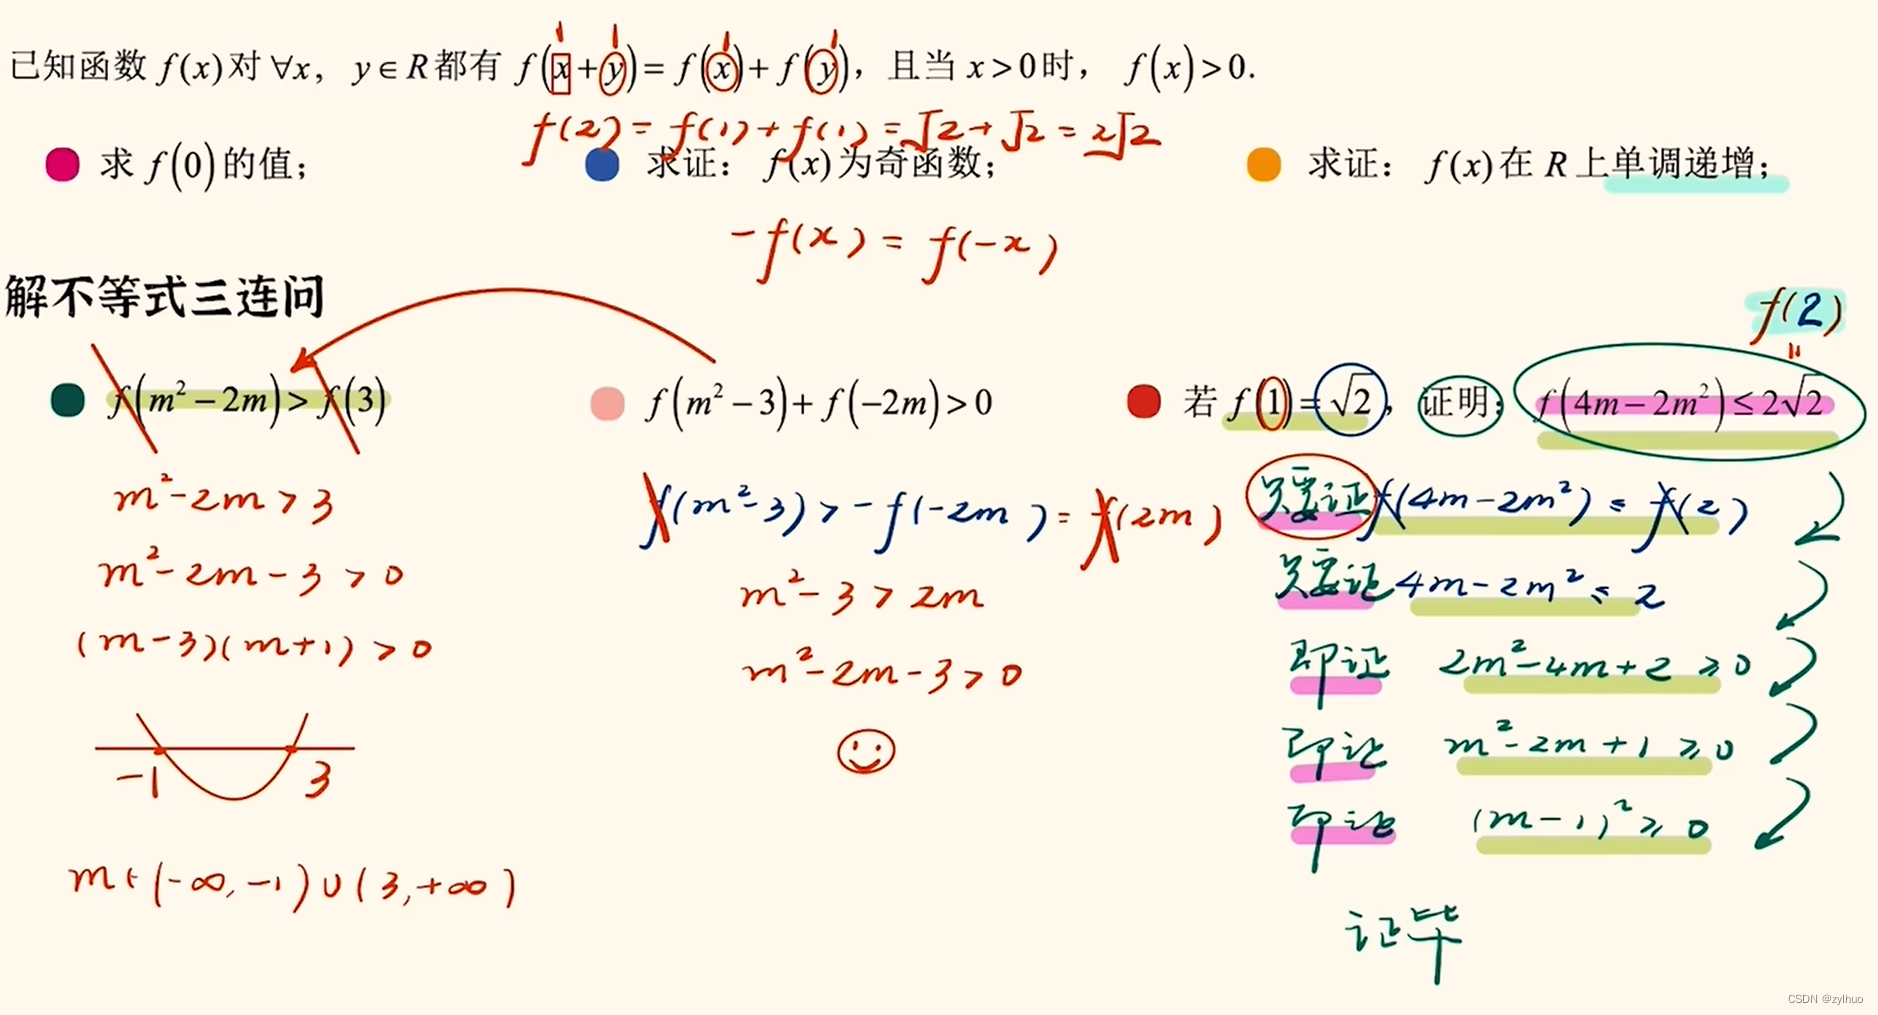 已知函数 f(x)对 ∀x， y∈R都有 f(x+y)=f(x)+f(y)，且当 x>0时， f(x)>0.
f(2)=f(1)+f(1)=√2+√2=2√2
求 f(0)的值；
求证： f(x)为奇函数；
求证： f(x)在 R 上单调递增；
-f(x)=f(-x)
解不等式三连问
f(2)
=
f(m²-2m)>f(3)
m²-2m>3
m²-2m-3>0
(m-3)(m+1)>0
-1 3
m∈(-∞,-1)∪(3,+∞)
f(m²-3)+f(-2m)>0
f(m²-3)>-f(-2m)=f(2m)
m²-3>2m
m²-2m-3>0
若 f(1)=√2，证明： f(4m-2m²)≤2√2
只要证f(4m-2m²)≤f(2)
只要证 4m-2m²≤2
即证 2m²-4m+2≥0
即证 m²-2m+1≥0
即证 (m-1)²≥0
证毕
CSDN @zylhuo